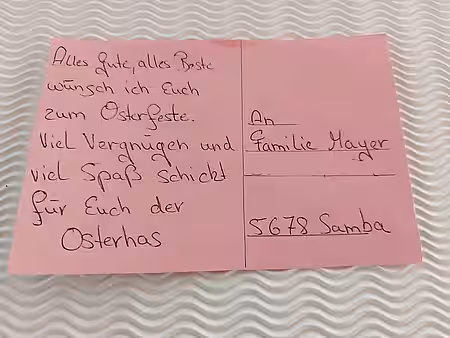 Alles Gute, alles Beste
wünsch ich Euch
zum Osterfeste.
Viel Vergnügen und
viel Spaß schickt
für Euch der
Osterhas
An
Familie Mayer
5678 Samba